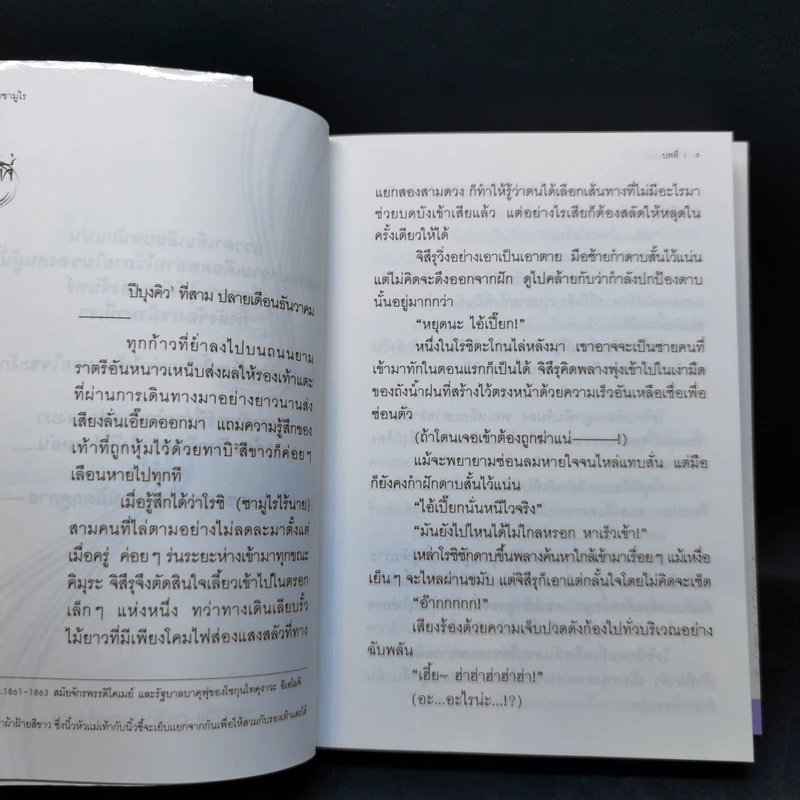 ซามูไร
ที่
ปีบุงคิว¹ ที่สาม ปลายเดือนธันวาคม
ทุกก้าวที่ย่ำลงไปบนถนนยาม
ราตรีอันหนาวเหน็บส่งผลให้รองเท้าแตะ
ที่ผ่านการเดินทางมาอย่างยาวนานส่ง
เสียงลั่นเอี๊ยดออกมา แถมความรู้สึกของ
เท้าที่ถูกหุ้มไว้ด้วยทาบิ² สีขาวก็ค่อยๆ
เลือนหายไปทุกที
เมื่อรู้สึกได้ว่าโรชิ (ซามูไรไร้นาย)
สามคนที่ไล่ตามอย่างไม่ลดละมาตั้งแต่
เมื่อครู่ ค่อยๆ ร่นระยะห่างเข้ามาทุกขณะ
คิมุระ จิสึรุจึงตัดสินใจเลี้ยวเข้าไปในตรอก
เล็กๆ แห่งหนึ่ง ทว่าทางเดินเลียบรั้ว
ไม้ยาวที่มีเพียงโคมไฟส่องแสงสลัวที่ทาง
.1861-1863 สมัยจักรพรรดิโคเมย์ และรัฐบาลบาคุฟุของโชกุนโทคุงาวะ อิเอโมจิ
ผ้าฝ้ายสีขาว ซึ่งนิ้วหัวแม่เท้ากับนิ้วชี้จะเย็บแยกจากกันเพื่อให้สวมกับรองเท้าแตะได้
บทที่ 1 9
แยกสองสามดวง ก็ทำให้รู้ว่าตนได้เลือกเส้นทางที่ไม่มีอะไรมา
ช่วยบดบังเข้าเสียแล้ว แต่อย่างไรเสียก็ต้องสลัดให้หลุดใน
ครั้งเดียวให้ได้
จิสึรุวิ่งอย่างเอาเป็นเอาตาย มือซ้ายกำดาบสั้นไว้แน่น
แต่ไม่คิดจะดึงออกจากฝัก ดูไปคล้ายกับว่ากำลังปกป้องดาบ
นั้นอยู่มากกว่า
“หยุดนะ ไอ้เปี๊ยก!”
หนึ่งในโรชิตะโกนไล่หลังมา เขาอาจจะเป็นชายคนที่
เข้ามาทักในตอนแรกก็เป็นได้ จิสึรุคิดพลางพุ่งเข้าไปในเงามืด
ของถังน้ำฝนที่สร้างไว้ตรงหน้าด้วยความเร็วอันเหลือเชื่อเพื่อ
ซ่อนตัว
(ถ้าโดนเจอเข้าต้องถูกฆ่าแน่———!)
แม้จะพยายามซ่อนลมหายใจจนไหล่แทบสั่น แต่มือ
ก็ยังคงกำฝักดาบสั้นไว้แน่น
“ไอ้เปี๊ยกนั่นหนีไวจริง”
“มันยังไปไหนได้ไม่ไกลหรอก หาเร็วเข้า!”
เหล่าโรชิชักดาบขึ้นพลางค้นหาใกล้เข้ามาเรื่อยๆ แม้เหงื่อ
เย็นๆ จะไหลผ่านขมับ แต่จิสึรุก็เอาแต่กลั้นใจโดยไม่คิดจะเช็ด
“อ๊ากกกกก!”
เสียงร้องด้วยความเจ็บปวดดังก้องไปทั่วบริเวณอย่าง
ฉับพลัน
“เฮี้ย~ ฮ่าฮ่าฮ่าฮ่าฮ่า!”
(อะ...อะไรน่ะ...!?)